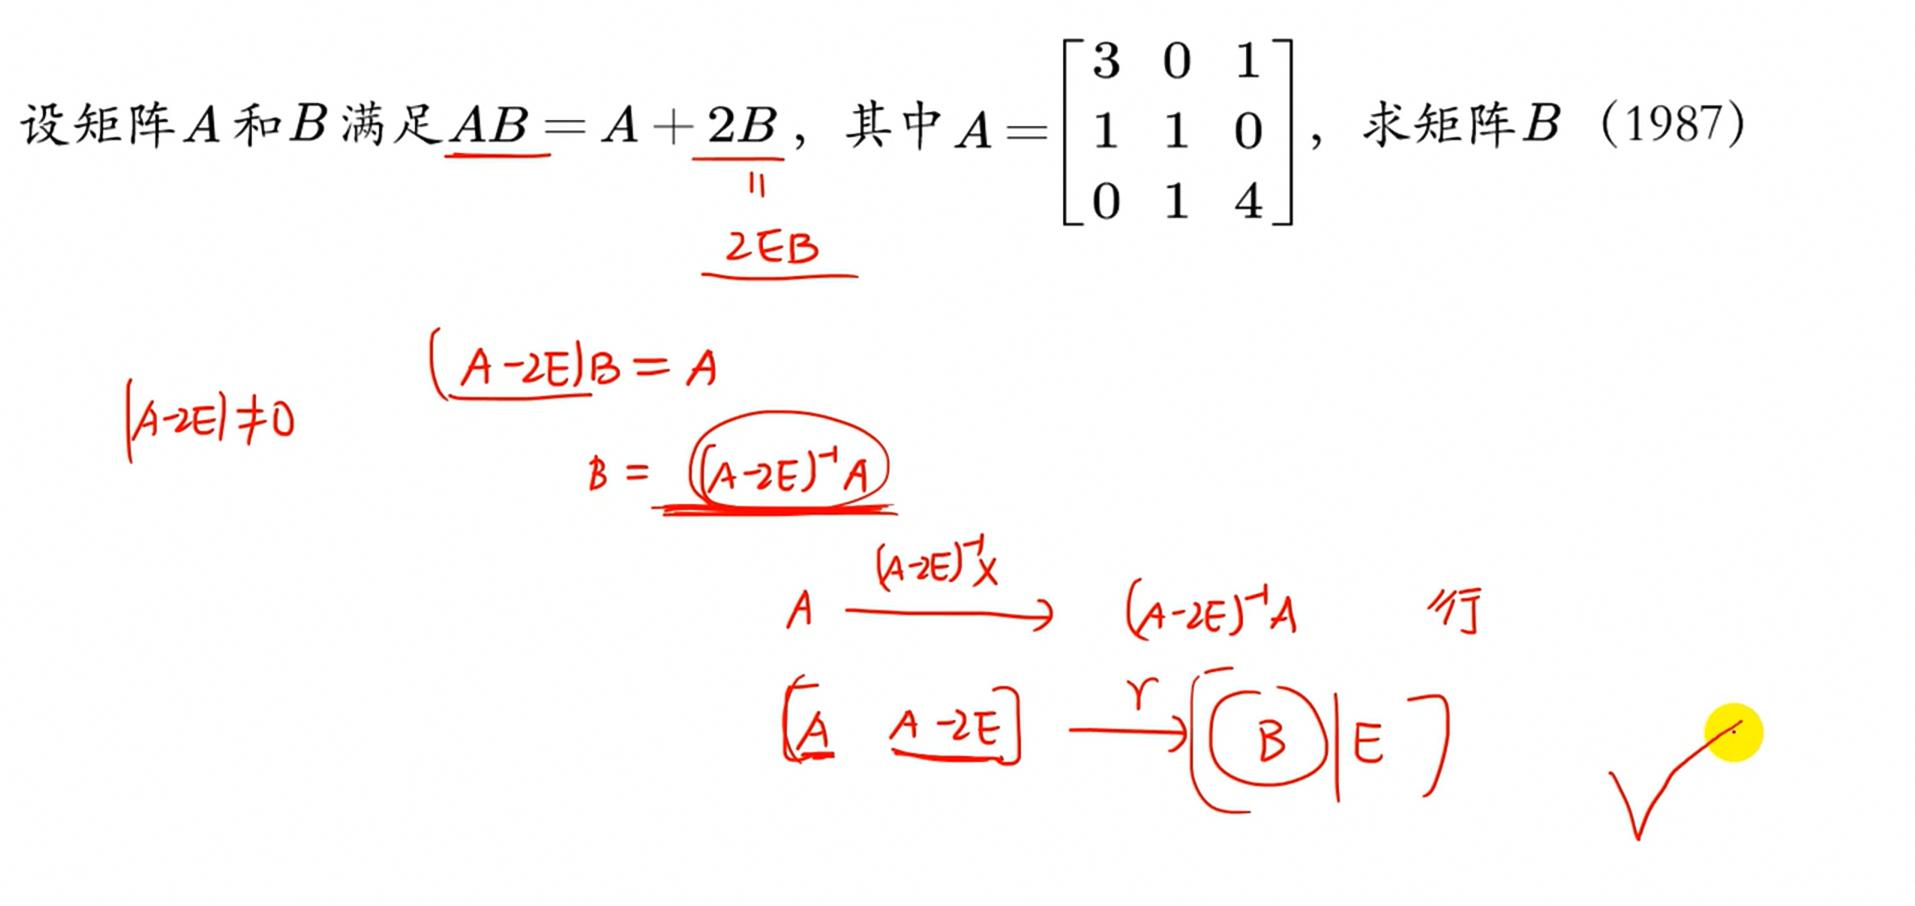 设矩阵A和B满足AB=A+2B，其中A=[3 0 1; 1 1 0; 0 1 4]，求矩阵B（1987）
=
2EB
(A-2E)B=A
|A-2E|≠0
B=(A-2E)⁻¹A
A (A-2E)⁻¹× → (A-2E)⁻¹A 行
[A A-2E] r → [B|E]